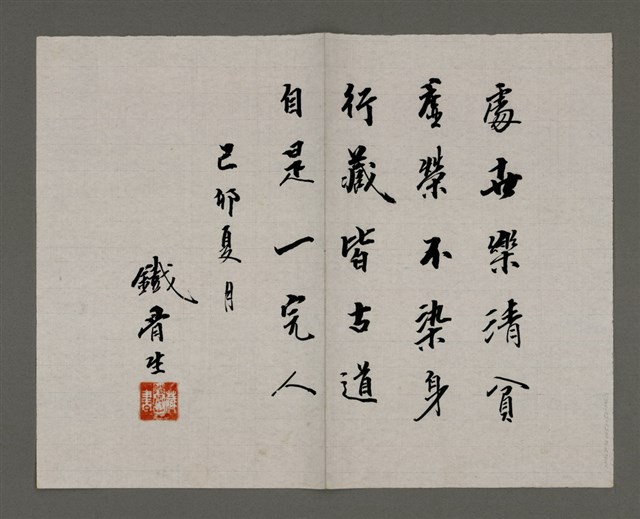 處世樂清貧
虛榮不染身
行藏皆古道
自是一完人
己卯夏月
鐵骨生